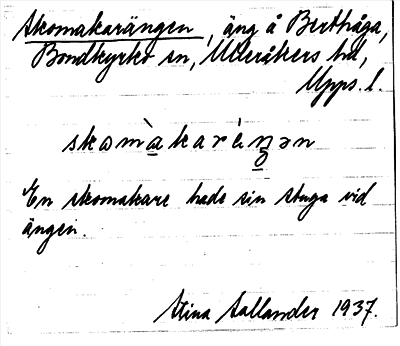 Skomakarängen, äng å Berthåga,
Bondkyrko sn, Ulleråkers hd,
Upps. l.
skomàkaréŋən
En skomakare hade sin stuga vid
ängen.
Stina Sallander 1937.